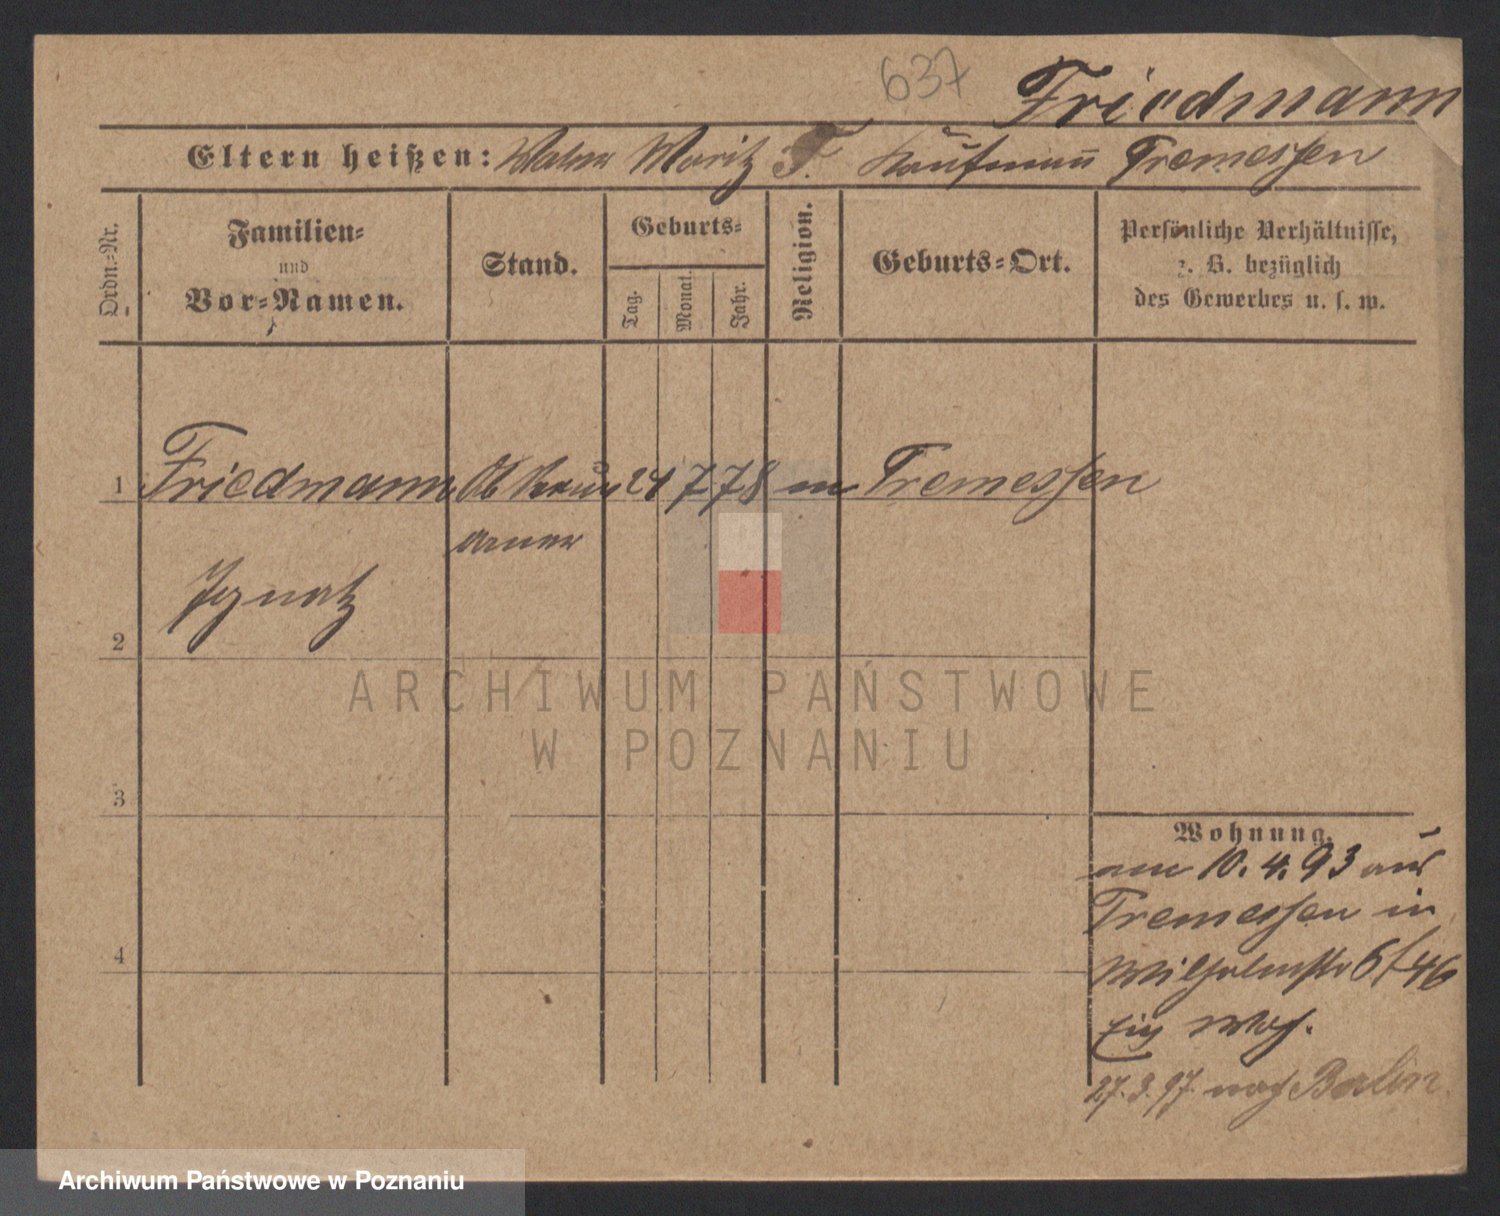 637
Friedmann
Eltern heißen: Vater Moritz F. Kaufmann Tremessen
Ordn.-Nr.
Familien-
und
Vor-Namen.
Stand.
Geburts-
Tag.
Monat.
Jahr.
Religion.
Geburts-Ort.
Persönliche Verhältnisse,
z. B. bezüglich
des Gewerbes u. s. w.
1 Friedmann 24 7 78 m Tremessen
Ignatz
2
ARCHIWUM PAŃSTWOWE
W POZNANIU
3
Wohnung.
am 10. 4. 93 aus
Tremessen in
Wilhelmstr 6/46
4
27. 3. 97. nach Berlin.
Archiwum Państwowe w Poznaniu